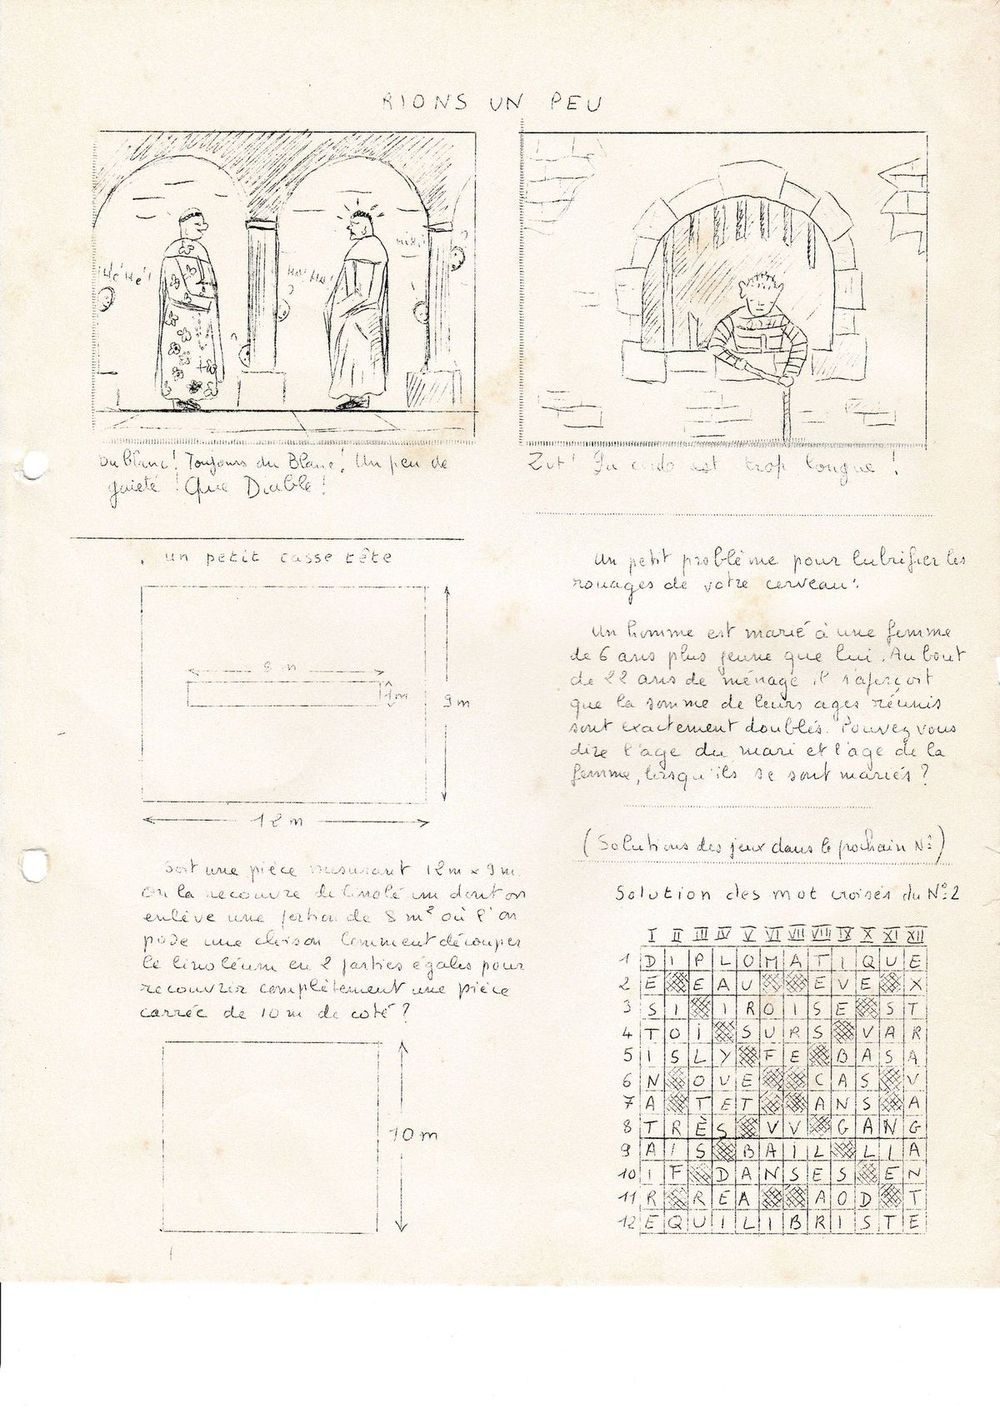 RIONS UN PEU
Hé Hé!
Ha! Ha!
Hi Hi!
Du Blanc! Toujours du Blanc! Un peu de
gaieté! Que Diable!
Zut! Ma corde est trop longue!
un petit casse tête
8 m
1 m
9 m
12 m
Soit une pièce mesurant 12 m x 9 m.
On la recouvre de linoléum dont on
enlève une portion de 8 m² où l'on
pose une cloison. Comment découper
le linoléum en 2 parties égales pour
recouvrir complètement une pièce
carrée de 10 m de coté?
10 m
Un petit problème pour lubrifier les
rouages de votre cerveau:
Un homme est marié à une femme
de 6 ans plus jeune que lui. Au bout
de 22 ans de ménage il s'aperçoit
que la somme de leurs ages réunis
sont exactement doublés. Pouvez vous
dire l'age du mari et l'age de la
femme, lorsqu'ils se sont mariés?
(Solutions des jeux dans le prochain N°)
Solution des mot croisés du N°2
I II III IV V VI VII VIII IX X XI XII
1 D I P L O M A T I Q U E
2 E E A U E V E X
3 S I I R O I S E S T
4 T O I S U R S V A R
5 I S L Y F E B A S A
6 N O U E C A S V
7 A T E T A N S A
8 T R È S V V G A N G
9 A I S B A I L L I A
10 I F D A N S E S E N
11 R R E A A O D T
12 E Q U I L I B R I S T E